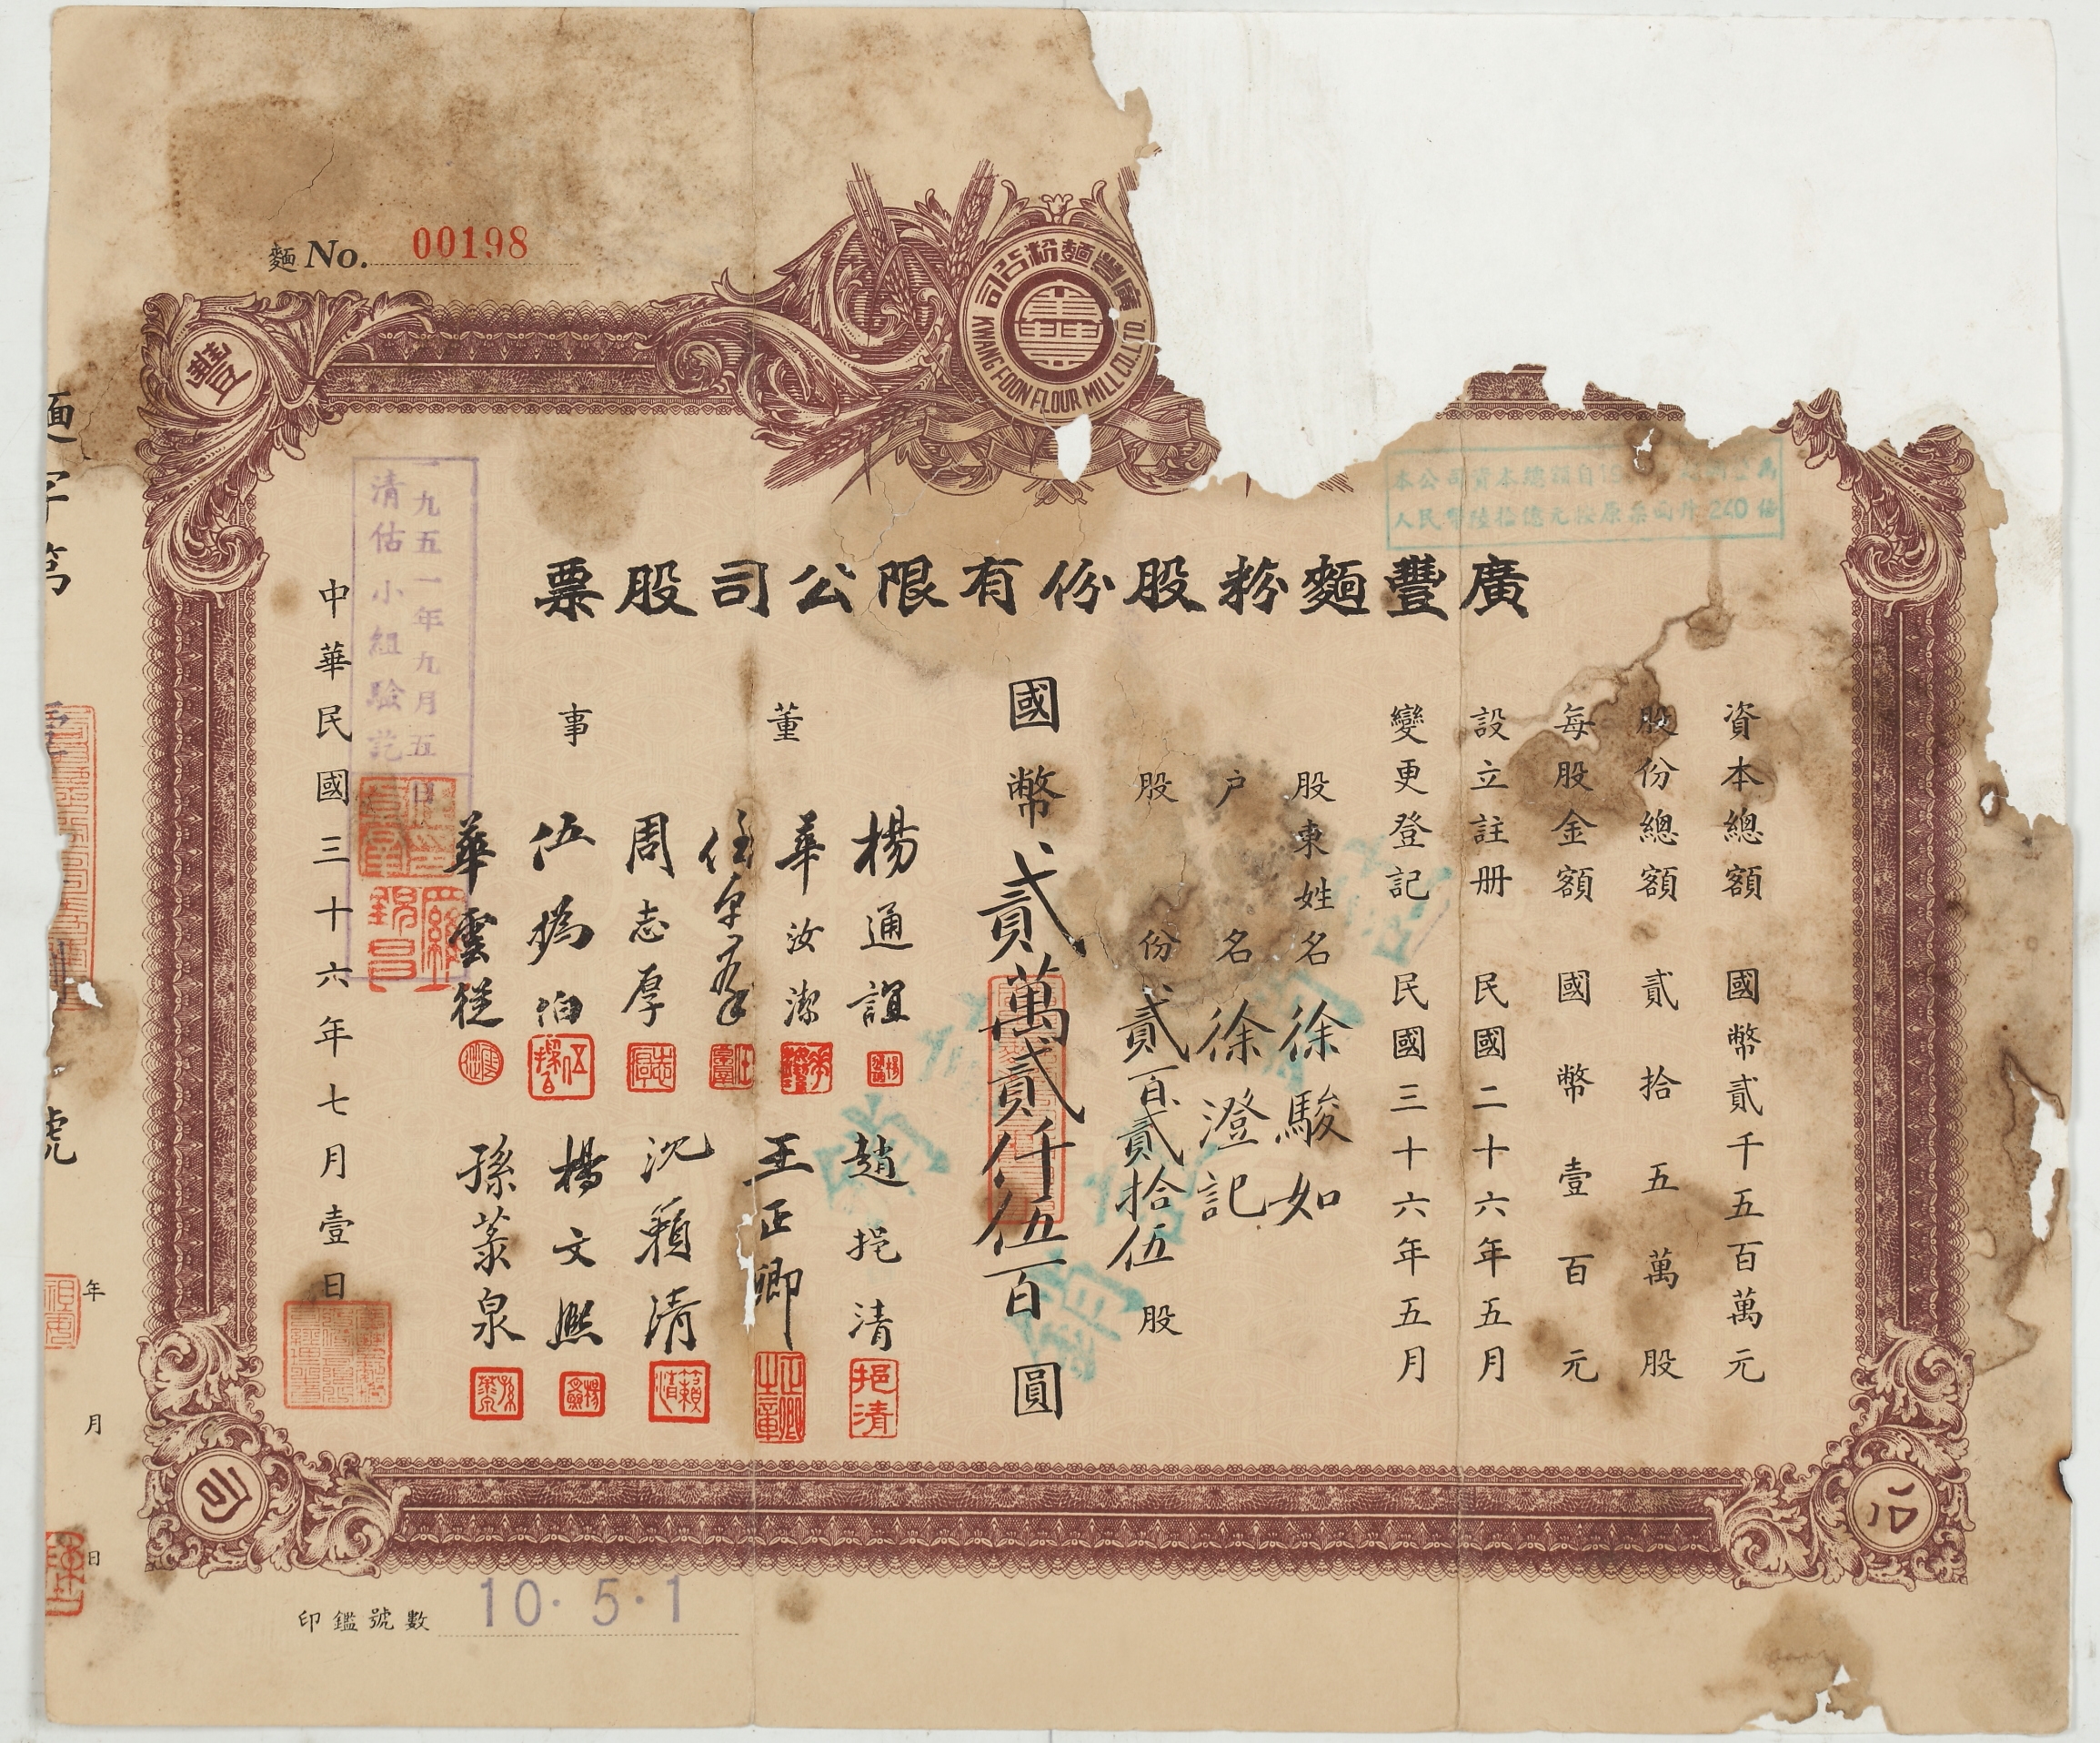 麵 No. 00198
廣豐麵粉公司
KWANG FOON FLOUR MILL CO. LTD.
豐
公
司
本公司資本總額自
人民幣陸拾億元按原票面升240倍
廣豐麵粉股份有限公司股票
資本總額 國幣貳千五百萬元
股份總額 貳拾五萬股
每股金額 國幣壹百元
設立註册 民國二十六年五月
變更登記 民國三十六年五月
股東姓名 徐駿如
户名 徐澄記
股份 貳百貳拾伍股
國幣貳萬貳仟伍百圓
董事
楊通誼
華汝潔
周志厚
伍撝伯
華雲從
趙挹清
王正卿
沈籟清
楊文熙
孫蒸泉
挹清
一九五一年九月五日
清估小組驗訖
中華民國三十六年七月壹日
麵字第 號
年 月 日
印鑑號數 10·5·1